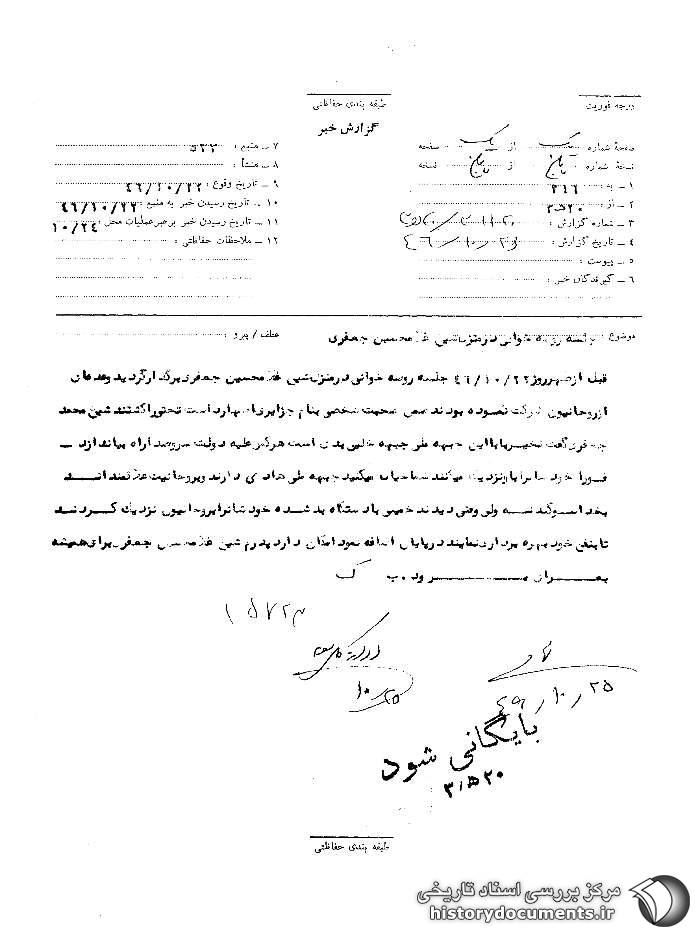 درجه فوریت
طبقه بندی حفاظتی
گزارش خبر
صفحهٔ شماره یک از یک صفحه
نسخهٔ شماره از نسخه
۱ ـ به : ۳۱۶
۲ ـ از : ۳ﻫ۲۰
۳ ـ شماره گزارش :
۴ ـ تاریخ گزارش :
۵ ـ پیوست :
۶ ـ گیرندگان خبر :
۷ ـ منبع : ۵۳۳
۸ ـ منشأ :
۹ ـ تاریخ وقوع : ۴۶/۱۰/۲۲
۱۰ ـ تاریخ رسیدن خبر به منبع : ۴۶/۱۰/۲۲
۱۱ ـ تاریخ رسیدن خبر برهبر عملیات محل : ۱۰/۲۴
۱۲ ـ ملاحظات حفاظتی :
موضوع : جلسه روضه خوانی درمنزل شیخ غلامحسین جعفری
عطف / پیرو :
قبل ازظهر روز ۴۶/۱۰/۲۲ جلسه روضه خوانی درمنزل شیخ غلامحسین جعفری برگذار گردید وعده‌ای
ازروحانیون شرکت نموده بودند ضمن صحبت شخصی بنام جزایری اظهارداشت شیخ محمد
جعفری گفت نخیر بابا این جبهه ملی جبهه خلیی بدی است هرکس علیه دولت سروصدا راه بیاندازد ـ
فورا خود شانرا باو نزدیک میکنند شما خیال میکنید جبهه ملی هادی دارند وبروحانیت علاقمند انـد
بخدا سوگند نـه ولی وقتی دیدند خمینی بادستگاه بد شده خود شانرا بروحانیون نزدیک کردند
تابنفع خود بهره برداری نمایند درپایان اضافه نمود امکان دارد پدرم شیخ غلامحسین جعفری برای همیشه
بعـراق بـرود . ب ک
۱۵۷۲۳
۱۰/۲۵
۴۶/۱۰/۲۵
بایگانی شود
۳ﻫ۲۰
طبقه بندی حفاظتی
مرکز بررسی اسناد تاریخی
historydocuments.ir